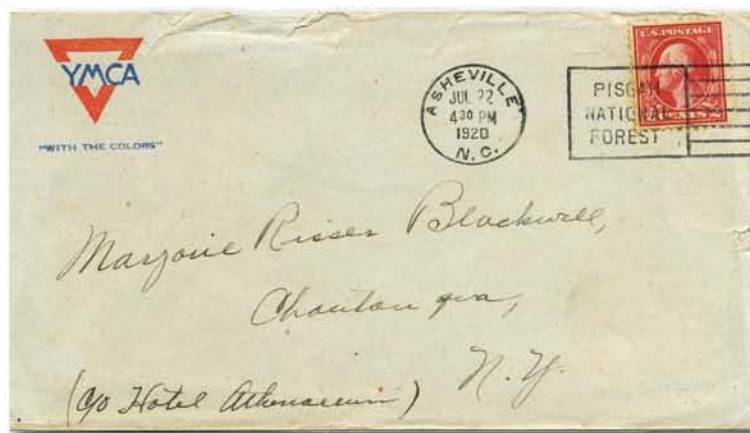 YMCA
"WITH THE COLORS"
ASHEVILLE
JUL 22
4 30 PM
1920
N.C.
PISGAH
NATIONAL
FOREST
U.S. POSTAGE
2 CENTS 2
Marjorie Risser Blackwell,
Chautauqua,
N.Y.
(c/o Hotel Athenaeum)